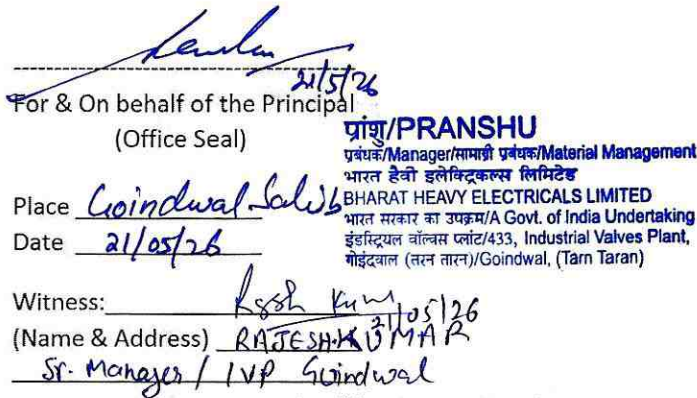 21/5/26
For & On behalf of the Principal
(Office Seal)
प्रांशु/PRANSHU
प्रबंधक/Manager/सामाग्री प्रबंधक/Material Management
भारत हैवी इलेक्ट्रिकल्स लिमिटेड
BHARAT HEAVY ELECTRICALS LIMITED
भारत सरकार का उपक्रम/A Govt. of India Undertaking
इंडस्ट्रियल वॉल्वस प्लांट/433, Industrial Valves Plant,
गोइंदवाल (तरन तारन)/Goindwal, (Tarn Taran)
Place Goindwal Sahib
Date 21/05/26
Witness: 21/05/26
(Name & Address) RAJESH KUMAR
Sr. Manager / IVP Goindwal